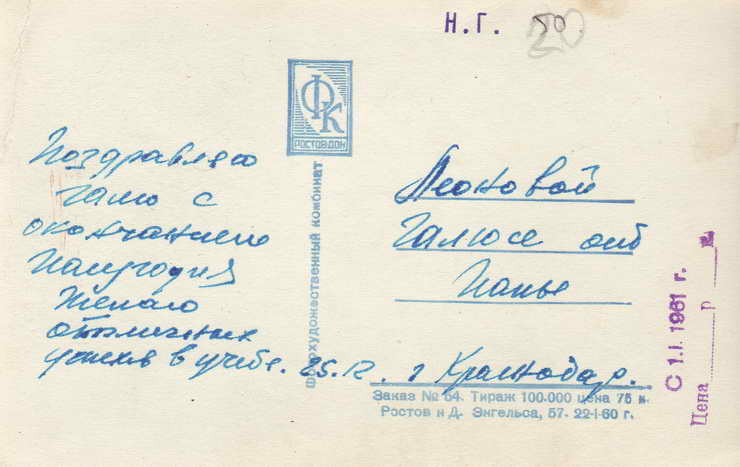 Н.Г. 50
20
ФК
РОСТОВДОН
художественный комбинат
Поздравляю
Галю с
окончанием
полугодия
Желаю
отличных
успехов в учебе. 25.12.
Леоновой
Галюсе от
Папы
г Краснодар.
Заказ № 54. Тираж 100.000 цена 75 к.
Ростов н Д. Энгельса, 57. 22-I-60 г.
С 1.I. 1961 г.
Цена р к